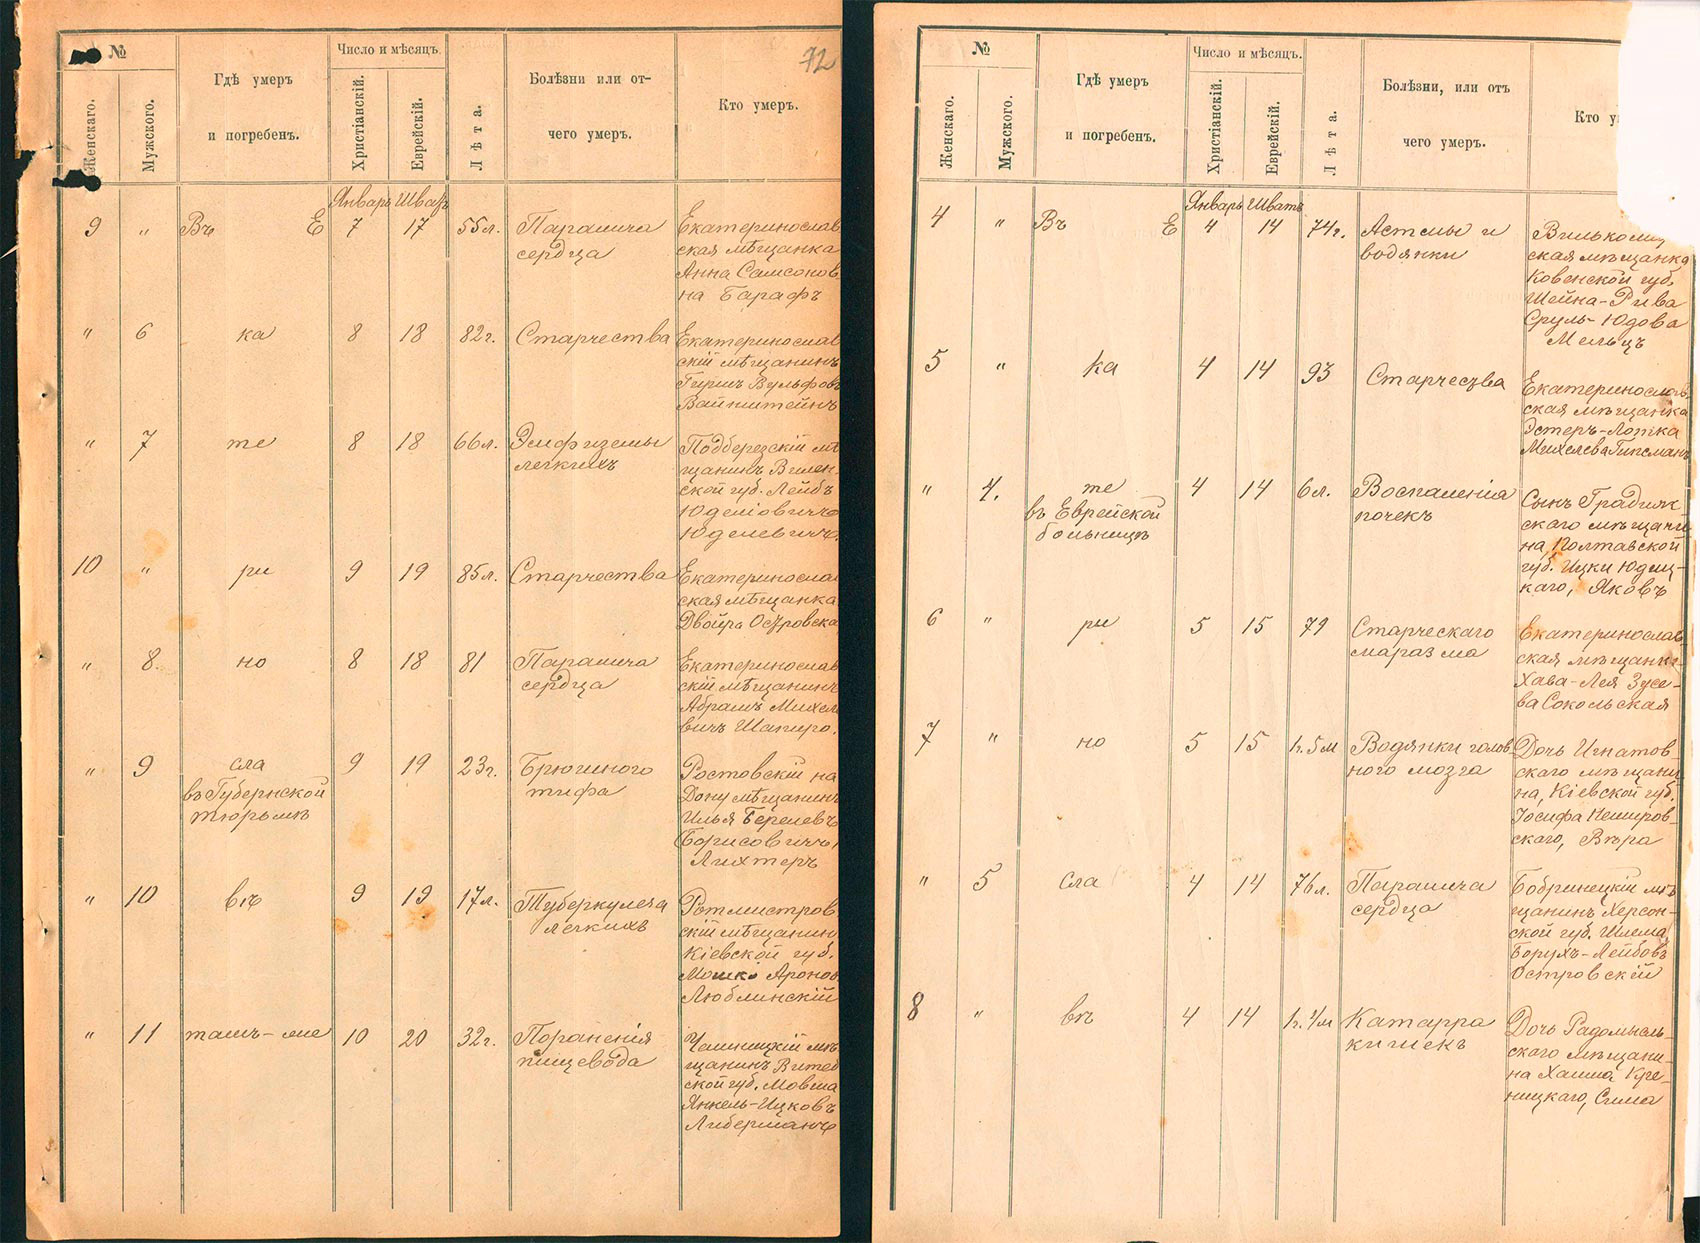 72
№
Женскаго.
Мужского.
Гдѣ умеръ
и погребенъ.
Число и мѣсяцъ.
Христіанскій.
Еврейскій.
Лѣта.
Болѣзни или от-
чего умеръ.
Кто умеръ.
Январь Шват
9 " Въ Е 7 17 55л. Паралича
сердца
Екатеринослав
ская мѣщанка
Анна Самсонов
на Барафъ
" 6 ка 8 18 82г. Старчества
Екатеринослав
скій мѣщанинъ
Гиршъ Вульфовъ
Вайнштейнъ
" 7 те 8 18 66л. Эмфиземы
легкихъ
Подберезскій мѣ
щанинъ Вилен
ской губ. Лейбъ
Юделіовичъ
Юделевичъ
10 " ри 9 19 85л. Старчества
Екатеринослав
ская мѣщанка
Двойра Островска
" 8 но 8 18 81 Паралича
сердца
Екатеринослав
скій мѣщанинъ
Абрамъ Михел
вичъ Шапиро.
" 9 сла 9 19 23г. Брюшного
въ Губернской тифа
тюрьмѣ
Ростовскій на
Дону мѣщанинъ
Илья Берелевъ
(Борисовичъ)
Лихтеръ
" 10 вѣ 9 19 17л. Туберкулеза
легкихъ
Ротмистров
скій мѣщанин
Кіевской губ.
Мошко Аронов
Люблинскій
" 11 ташъ-ме 10 20 32г. Пораненія
пищевода
Чашницкій мѣ
щанинъ Витеб
ской губ. Мовша
Янкель-Ицковъ
Либерманъ
№
Женскаго.
Мужского.
Гдѣ умеръ
и погребенъ.
Число и мѣсяцъ.
Христіанскій.
Еврейскій.
Лѣта.
Болѣзни, или отъ
чего умеръ.
Кто у
Январь Шватъ
4 " Въ Е 4 14 74г. Астмы и
водянки
Вилькоми
ская мѣщанка
Ковенской губ.
Шейна-Рива
Сруль-Юдова
Мельцъ
5 " ка 4 14 93 Старчества
Екатеринослав
ская мѣщанка
Эстеръ-Лотка
Михелева Гипсманъ
" 4. те 4 14 6л. Воспаленія
въ Еврейской почекъ
больницѣ
Сынъ Градижк
скаго мѣщани
на, Полтавской
губ. Ицки Юдиц-
каго, Яковъ
6 " ри 5 15 79 Старческаго
маразма
Екатеринослав
ская мѣщанка
Хава-Лея Зусе-
ва Сокольская
7 " но 5 15 1г. 5м Водянки голов
ного мозга
Дочь Игнатов
скаго мѣщани
на, Кіевской губ.
Іосифа Немиров-
скаго, Вѣра
" 5 сла 4 14 76л. Паралича
сердца
Бобринецкій мѣ
щанинъ Херсон-
ской губ. Шлема
Борухъ-Лейбовъ
Островскій
8 " вѣ 4 14 1г. 4м Катарра
кишекъ
Дочь Радомысль-
скаго мѣщани-
на Хаима Кре-
ницкаго, Сима